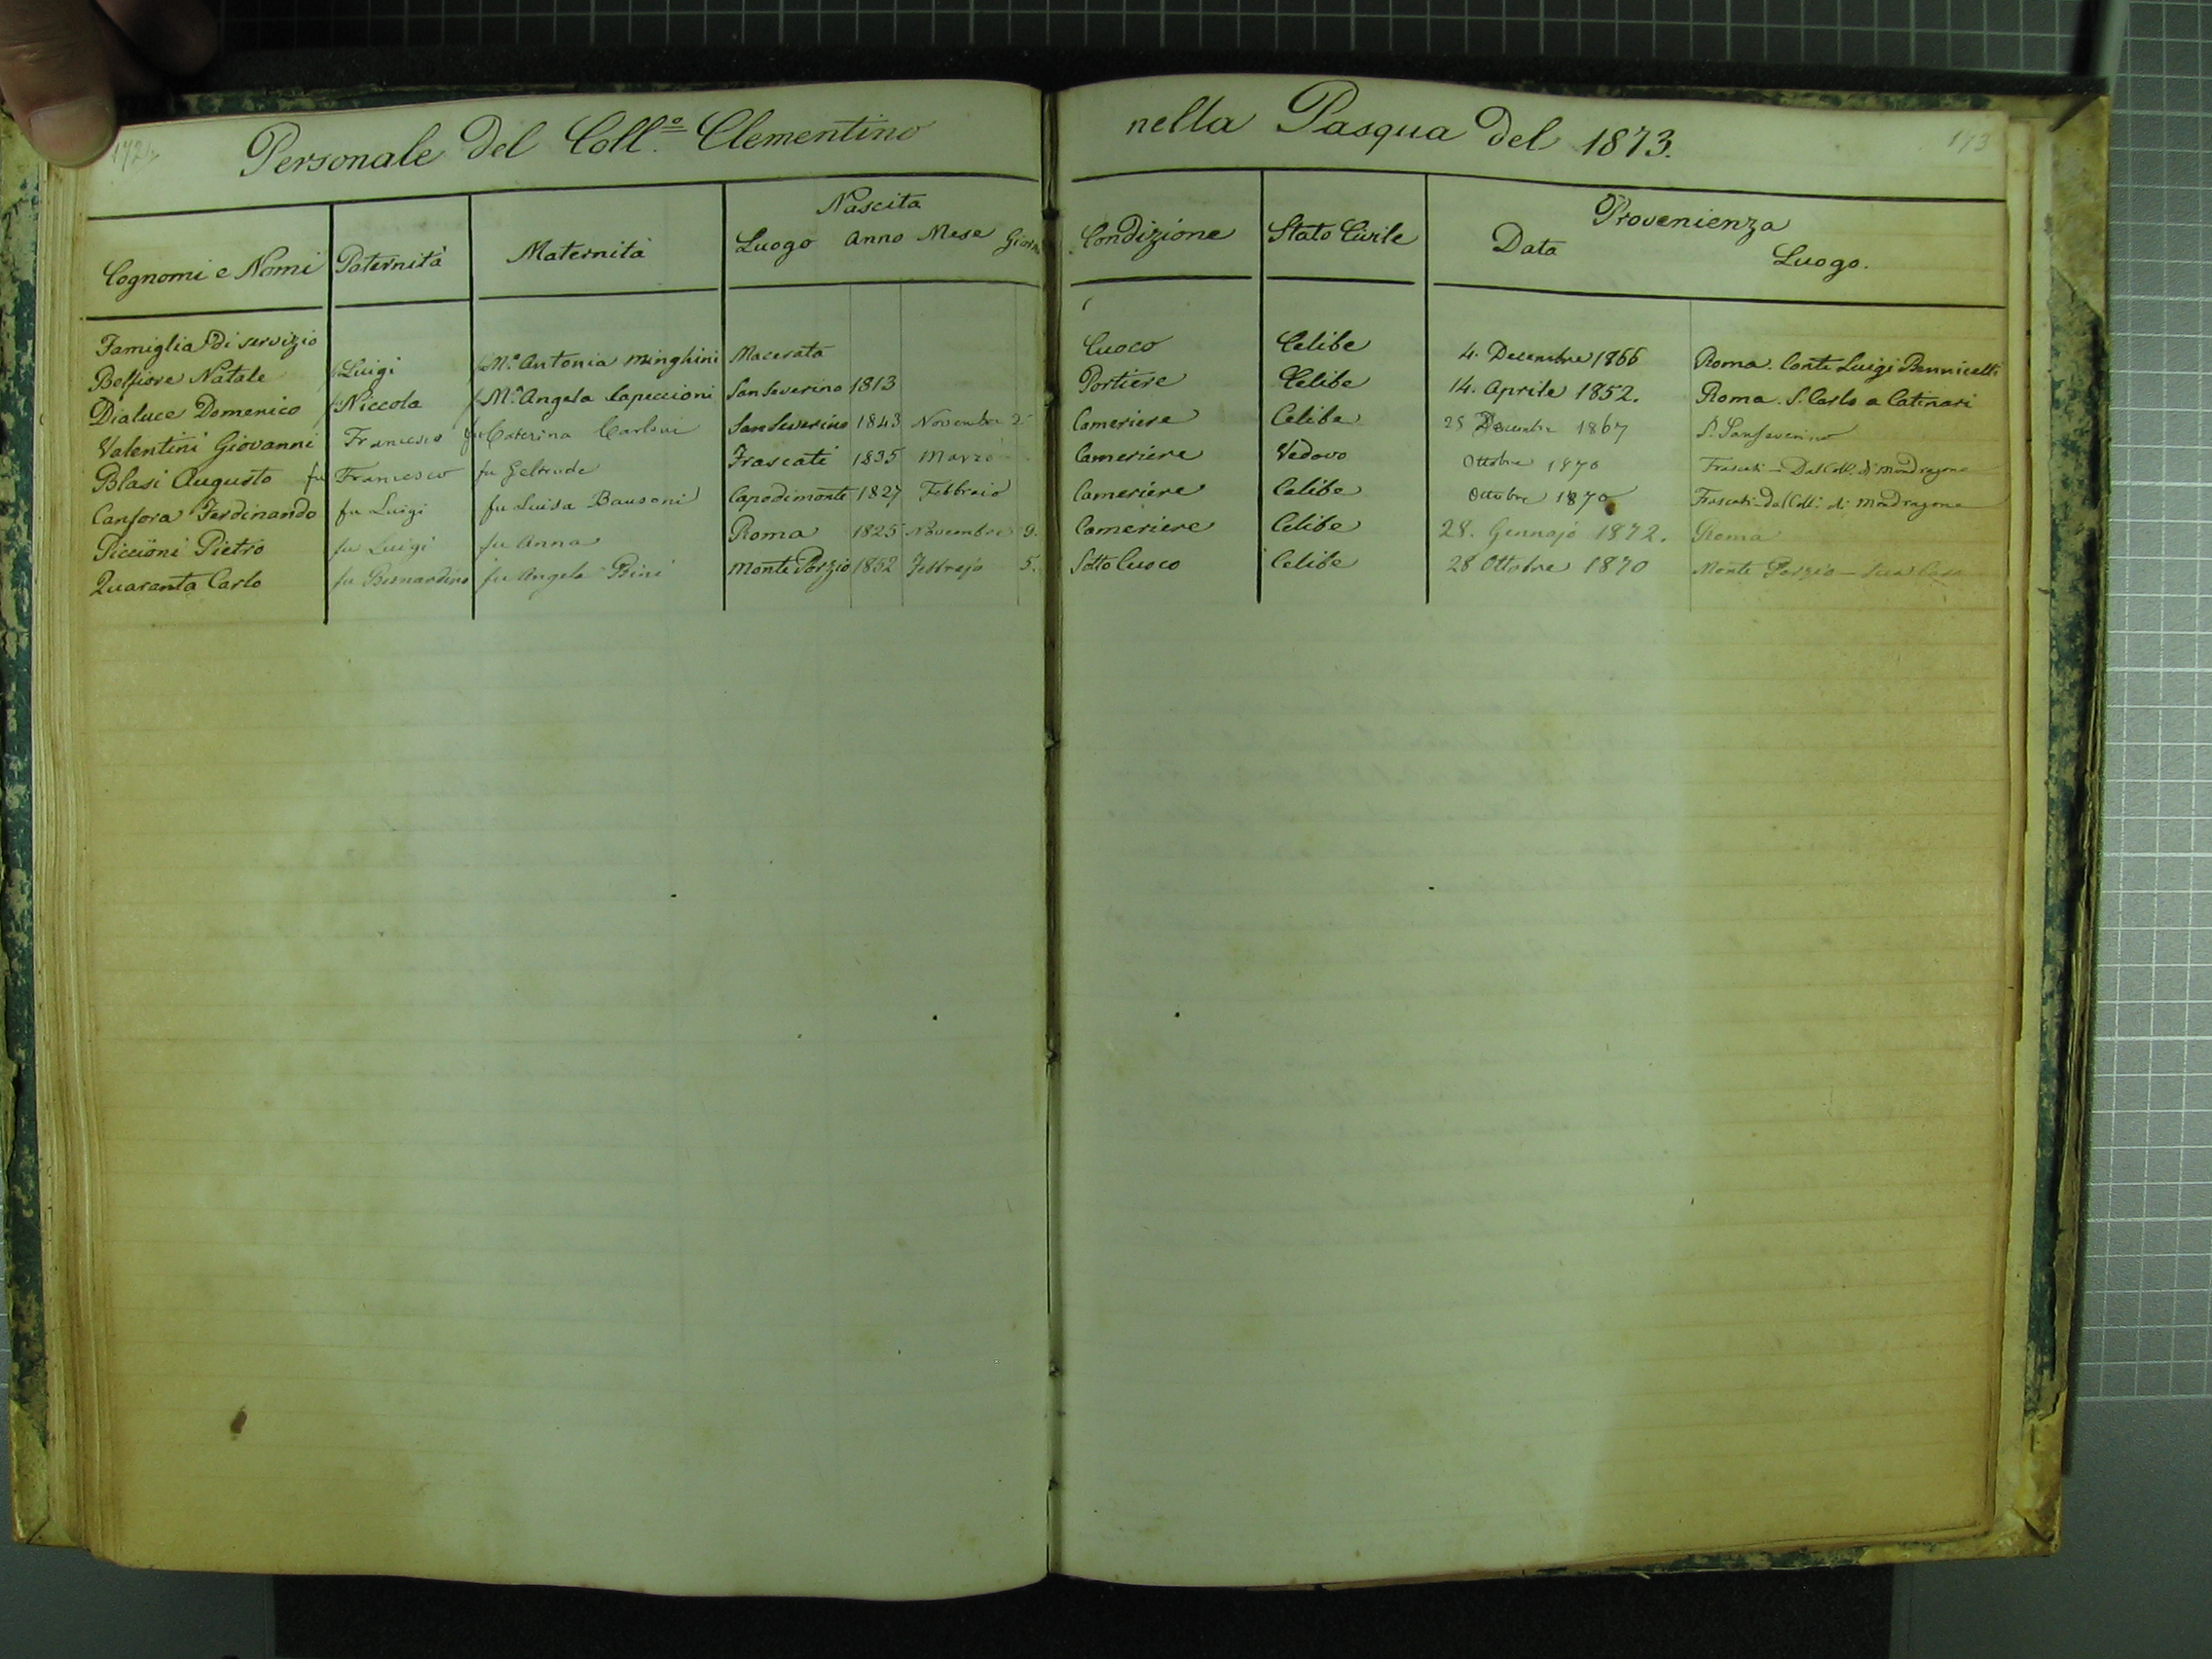 172
Personale del Coll.º Clementino nella Pasqua del 1873.
173
Cognomi e Nomi Paternità Maternità Nascita Luogo Anno Mese Giorn Condizione Stato Civile Provenienza Data Luogo.
Famiglia di servizio
Belfiore Natale f Luigi f Mª Antonia Minghini Macerata Cuoco Celibe 4. Decembre 1866 Roma. Conte Luigi Bennicelli
Dialuce Domenico f Niccola f Mª Angela Capeccioni San Severino 1813 Portiere Celibe 14. Aprile 1852. Roma. S. Carlo a Catinari
Valentini Giovanni Francesco fu Caterina Carloni San Severino 1843 Novembre 2 Cameriere Celibe 25 Decembre 1867 S. Sanseverino
Blasi Augusto fu Francesco fu Geltrude Frascati 1835 Marzo Cameriere Vedovo Ottobre 1870 Frascati - Dal Coll. di Mondragone
Canfora Ferdinando fu Luigi fu Luisa Bausoni Capodimonte 1827 Febbraio Cameriere Celibe Ottobre 1870 Frascati - dal Coll. di Mondragone
Piccioni Pietro fu Luigi fu Anna Roma 1825 Novembre 9. Cameriere Celibe 28. Gennajo 1872. Roma
Quaranta Carlo fu Bernardino fu Angela Bini Monte Porzio 1852 Febbrajo 5. Sotto Cuoco Celibe 28 Ottobre 1870 Monte Porzio - sua Casa